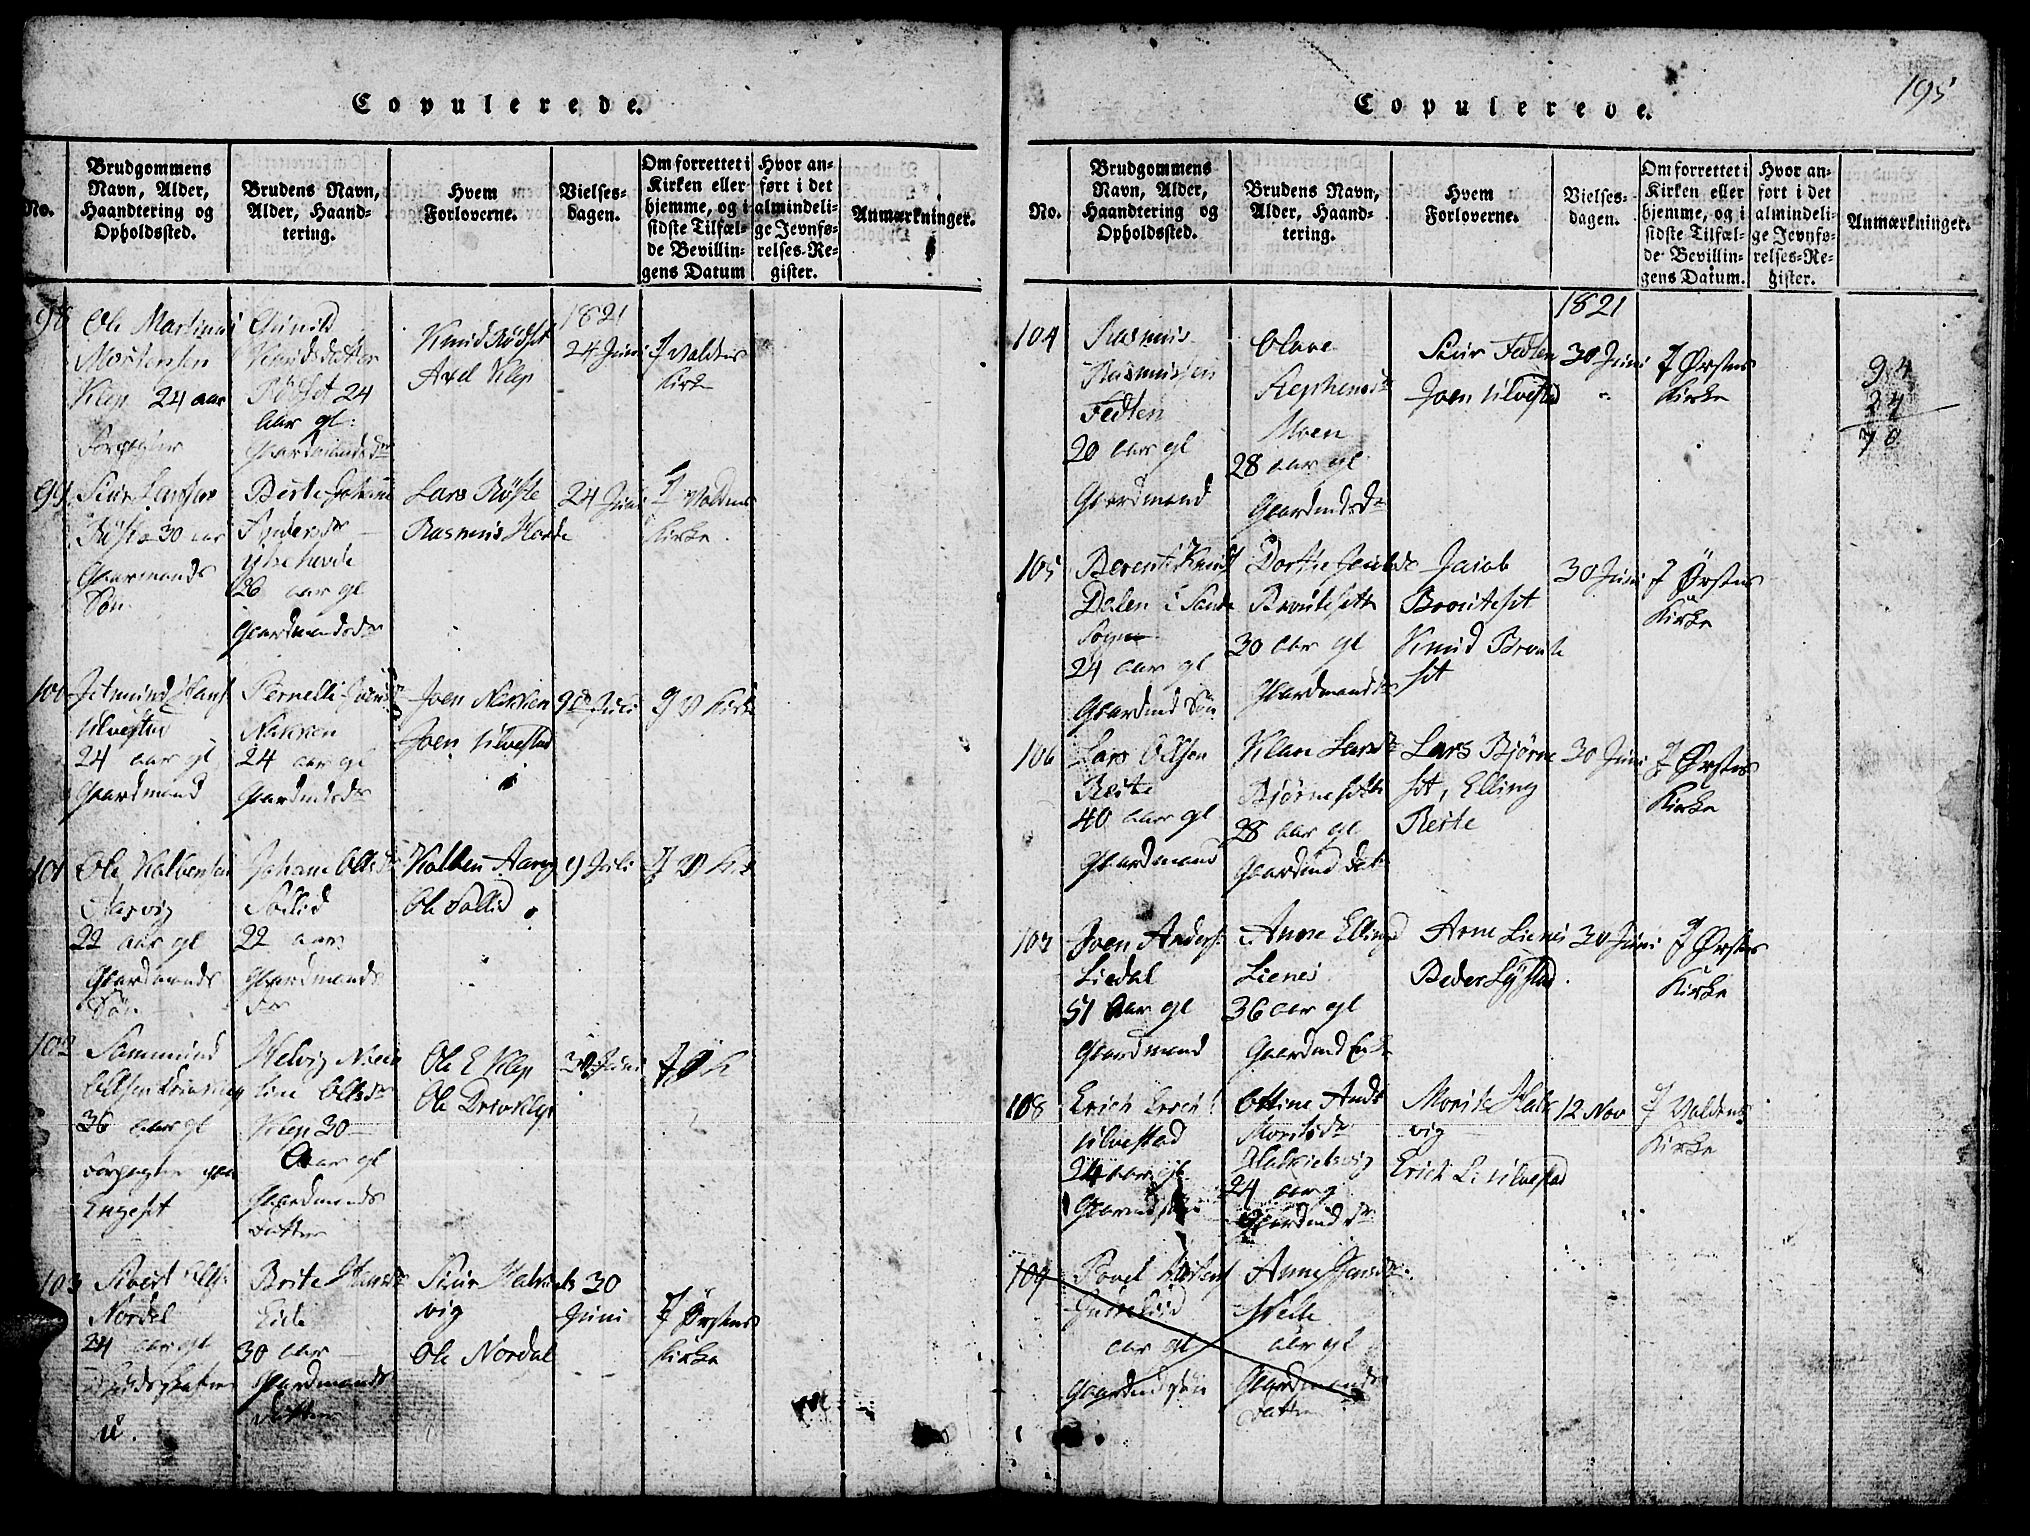 Copulerede.
No.
Brudgommens
Navn, Alder,
Haandtering og
Opholdssted.
Brudens Navn,
Alder, Haand-
tering.
Hvem
Forloverne.
Vielses-
dagen.
Om forrettet i
Kirken eller
hjemme, og i
sidste Tilfæl-
de Bevillin-
gens Datum
Hvor an-
ført i det
almindeli-
ge Jevnfø-
relses-Re-
gister.
Anmærkninger.
98
Ole Martinus
Mortensen
Klep 24 aar
Gunild
Knudsdatter
Rödset 24
aar gl:
Knud Rödset
Axel Klep
1821
24 Juni
J Voldens
Kirke
99
Siur Larssen
30 aar
Gaarmands
Søn
Berte Johanne
Andersdr
26 aar gl
Gaardmandsdr
Lars Röste
Rasmus Hovde
24 Juni
J Voldens
Kirke
100
Jetmund Hans
Ulvestad
24 aar gl
Gaardmand
Pernelle Joens
Nekken
24 aar gl
Gaardmdsdr
Joen Nekken
Joen Ulvestad
9 Juli
J V Kirke
101
Ole Kolbens
Aarvig
22 aar gl
Gaardmands
Søn
Johane Olsdr
Sollid
22 aar
Gaardmands
dr
Kolben Aarvig
Ole Sollid
9 Juli
J V K
102
Sammund
Olsen
36 aar gl
Engeset
Helvig
Olsdr
Klep 30
aar gl
Gaardmands
datter
Ole E Klep
Ole Driveklep
30 Juni
J Ø K
103
Sivert Ols
Nordal
24 aar gl
Brite Hansdr
Eide
30 aar
Gaardmands
datter
Siur Halkiels
vig
Ole Nordal
30
Juni
J Ørstens
Kirke
Copulerede.
195
No.
Brudgommens
Navn, Alder,
Haandtering og
Opholdssted.
Brudens Navn,
Alder, Haand-
tering.
Hvem
Forloverne.
Vielses-
dagen.
Om forrettet i
Kirken eller
hjemme, og i
sidste Tilfæl-
de Bevillin-
gens Datum.
Hvor an-
ført i det
almindeli-
ge Jevnfø-
relses-Re-
gister.
Anmærkninger.
104
Rasmus
Rasmussen
Fedten
20 aar gl
Gaardmand
Olave
Stephensdr
Moen
28 aar gl
Gaardmdsdr
Siur Fedten
Joen Ulvestad
1821
30 Juni
J Ørstens
Kirke
94
24
70
105
Berent Knuds
Dalen i Sande
Sogn
24 aar gl
Gaardmd Søn
Dortie Jacobsdr
Brouteset
30 aar gl
Gaardmandsdr
Jacob
Brouteset
Knud Broute
set
30 Juni
J Ørstens
Kirke
106
Lars Olsen
Reite
40 aar gl
Gaardmand
Larsdr
Bjørneset
28 aar gl
Gaardmd dat
Lars Bjørne
set, Elling
Reite
30 Juni
J Ørstens
Kirke
107
Joen Anders
Liedal
51 aar gl
Gaardmand
Anne Elling
Lienes
36 aar gl
Gaardmd Enke
Arne Lienes
Peder Lystad
30 Juni
J Ørstens
Kirke
108
Erich Erich
Ulvestad
24 aar gl
Gaardmd søn
Oline And
Moritsdr
Halkielsvig
24 aar g
Gaardmd dr
Morits Halk
vig
Erich L Ulvestad
12 Nov
J Voldens
Kirke
109
Povel
aar gl
Gaardmd søn
Anne Jensdr
Velle
aar gl
Gaardmands
datter